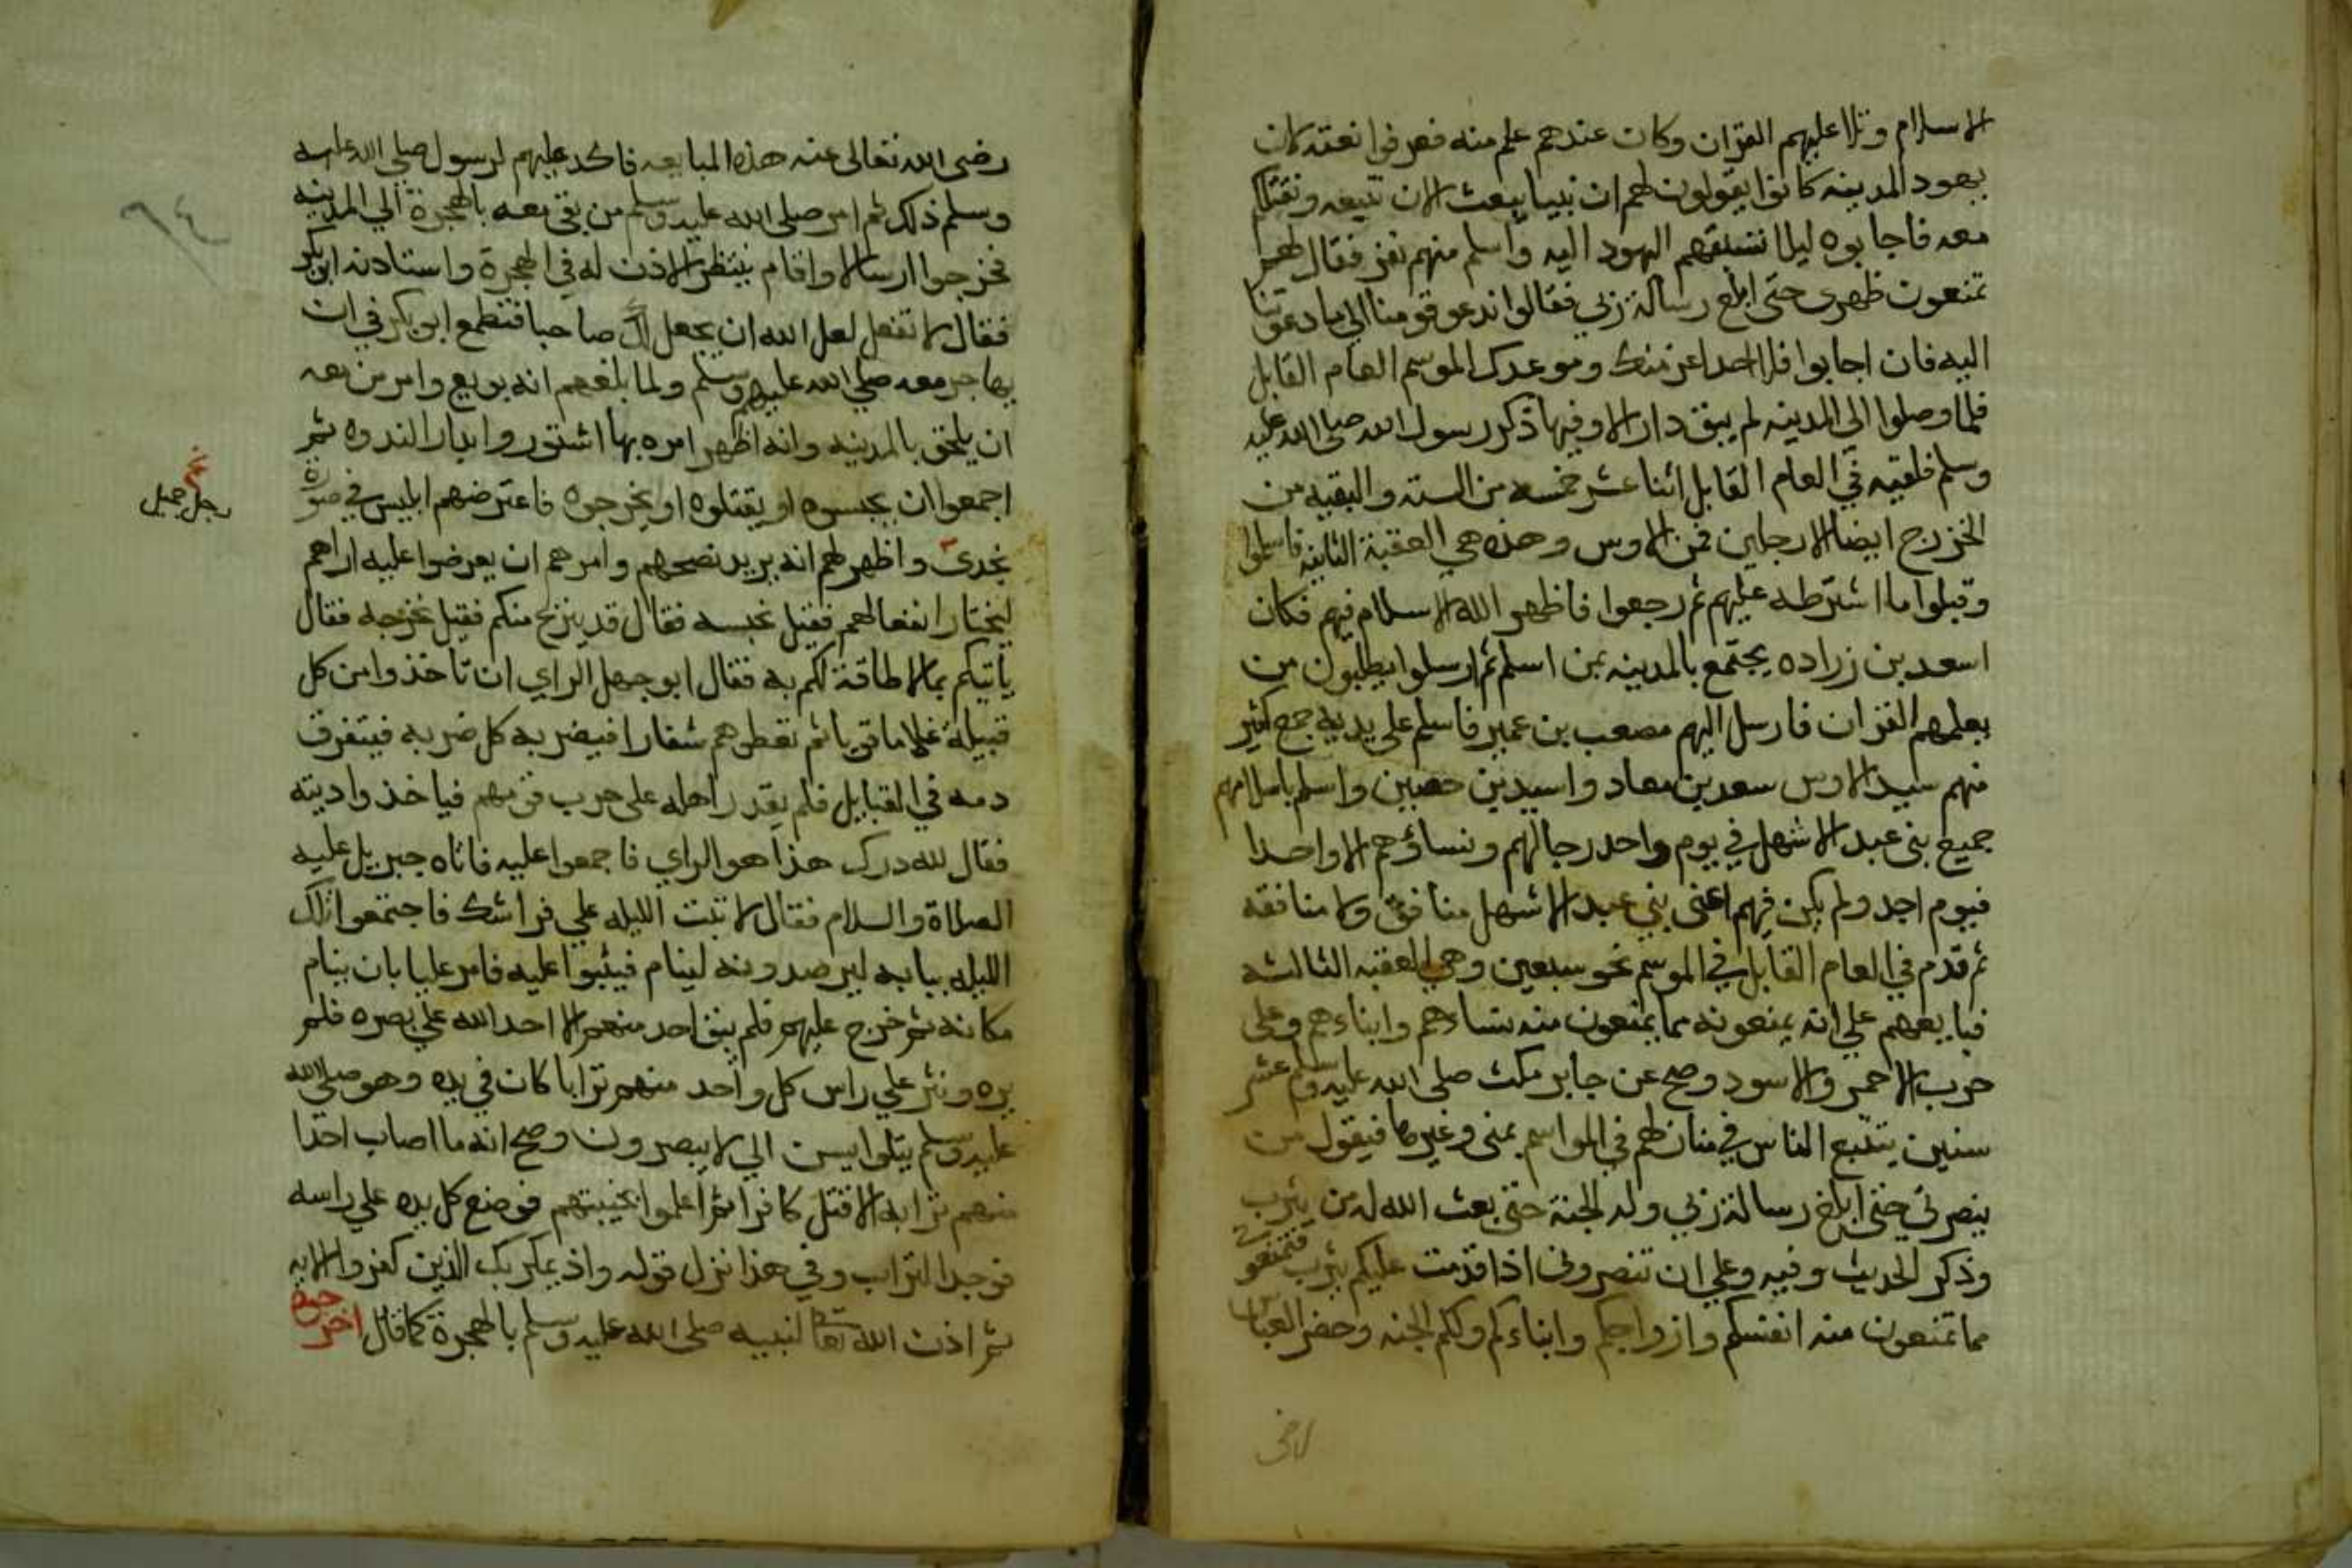 الاسلام وتلا عليهم القران وكان عندهم علم منه فعرفوا نعته كان
يهود المدينه كانوا يقولون لهم ان نبيا يبعث الان نتبعه ونقتلكم
معه فاجابوه ليلا تسبقهم اليهود اليه واسلم منهم نفر فقال لهم
تمنعون ظهرى حتى ابلغ رسالة ربي فقالوا ندعو قومنا الى ما دعوتنا
اليه فان اجابوا فلا احد اعز منك وموعدك الموسم العام القابل
فلما وصلوا الى المدينه لم يبق دار الا وفيها ذكر رسول الله صلى الله عليه
وسلم فلقيه في العام القابل اثنا عشر خمسه من السته والبقيه من
الخزرج ايضا الا رجلين فمن الاوس وهذه هي العقبة الثانيه فاسلموا
وقبلوا ما اشترطه عليهم ثم رجعوا فاظهر الله الاسلام فيهم فكان
اسعد بن زراده يجتمع بالمدينه بمن اسلم ثم ارسلوا يطلبون من
يعلمهم القران فارسل اليهم مصعب بن عمير فاسلم على يديه جمع كثير
منهم سيد الاوس سعد بن معاد واسيد بن حصين واسلم باسلامهم
جميع بني عبد الاشهل في يوم واحد رجالهم ونساؤهم الا واحدا
فيوم احد ولم يكن فيهم اعنى بني عبد الاشهل منافق ولا منافقه
ثم قدم في العام القابل في الموسم نحو سبعين وهي العقبه الثالثه
فبايعهم على انه يمنعونه مما يمنعون منه نساءهم وابناءهم وعلى
حرب الاحمر والاسود وصح عن جابر مكث صلى الله عليه وسلم عشر
سنين يتتبع الناس في منازلهم في المواسم بمنى وغيرها فيقول من
ينصرني حتى ابلغ رسالة ربي وله الجنة حتى بعث الله له من يثرب
وذكر الحديث وفيه وعلى ان تنصروني اذا قدمت عليكم يثرب فتمنعوني
مما تمنعون منه انفسكم وازواجكم وابناءكم ولكم الجنه وحضر العباس
رضى
رضى الله تعالى عنه هذه المبايعه فاكد عليهم لرسول صلى الله عليه
وسلم ذلك ثم امر صلى الله عليه وسلم من بقى معه بالهجرة الي المدينه
فخرجوا ارسالا واقام ينتظر الاذن له في الهجرة واستادنه ابو بكر
فقال لا تفعل لعل الله ان يجعل لك صاحبا فتطمع ابو بكر في ان
يهاجر معه صلى الله عليه وسلم ولما بلغهم انه بويع وامر من معه
ان يلحق بالمدينه وانه اظهر امره بها اشتوروا بدار الندوه ثم
اجمعوا ان يحبسوه او يقتلوه او يخرجوه فاعترضهم ابليس في صورة
نجدى واظهر لهم انه يريد نصحهم وامرهم ان يعرضوا عليه اراهم
ليختار انفعا لهم فقيل نحبسه فقال قد ينزع منكم فقيل نخرجه فقال
ياتيكم بمالا طاقة لكم به فقال ابو جهل الراي ان تاخذوا من كل
قبيلة غلاما قويا ثم نعطهم شفارا فيضربه كل ضربه فيتفرق
دمه في القبايل فلم يقدر اهله على حرب قومهم فياخذوا ديته
فقال لله درك هذا هو الراي فاجمعوا عليه فاتاه جبريل عليه
الصلاة والسلام فقال لا تبت الليله علي فراشك فاجتمعوا تلك
الليله ببابه ليرصدونه لينام فيثبوا عليه فامر عليا بان ينام
مكانه ثم خرج عليهم فلم يبق احد منهم الا اخد الله علي بصره فلم
يره ونثر علي راس كل واحد منهم ترابا كان في يده وهو صلى الله
عليه وسلم يتلوا يسن الي لا يبصرون وصح انه ما اصاب احدا
منهم ترابه الا قتل كافرا ثم اعلموا بخيبتهم فوضع كل يده علي راسه
فوجد التراب وفي هذا نزل قوله واذ يمكر بك الذين كفروا الايه
ثم اذن الله تعالى لنبيه صلى الله عليه وسلم بالهجرة كما قال اخرجه
رجل جميل
٩٤